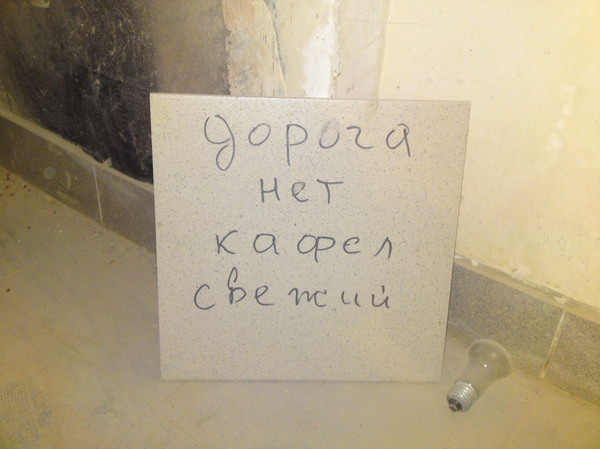 дорога
нет
кафел
свежий